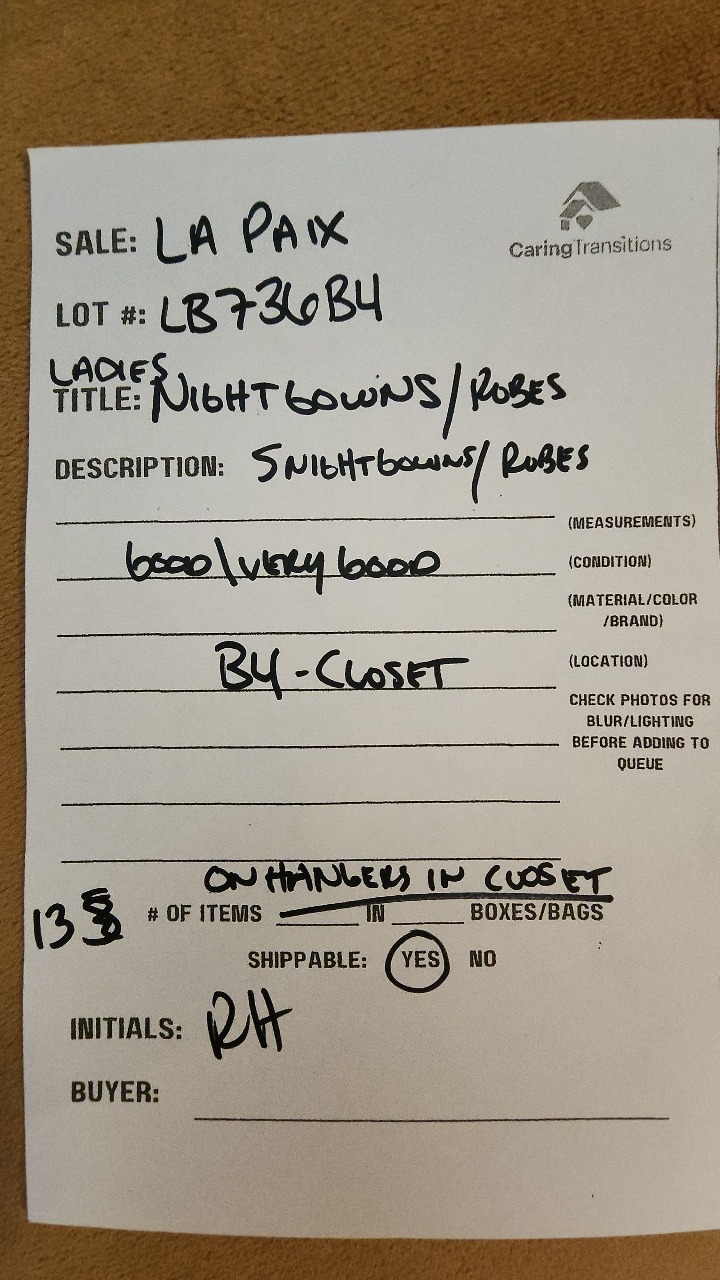 CaringTransitions
SALE: LA PAIX
LOT #: LB736B4
LADIES
TITLE: NIGHTGOWNS/ROBES
DESCRIPTION: 5 NIGHTGOWNS/ROBES
(MEASUREMENTS)
GOOD\VERY GOOD (CONDITION)
(MATERIAL/COLOR
/BRAND)
B4-CLOSET (LOCATION)
CHECK PHOTOS FOR
BLUR/LIGHTING
BEFORE ADDING TO
QUEUE
ON HANGERS IN CLOSET
13 # OF ITEMS IN BOXES/BAGS
SHIPPABLE: YES NO
INITIALS: RH
BUYER: